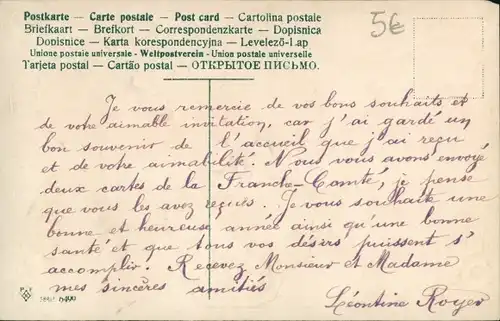 Postkarte — Carte postale — Post card — Cartolina postale
Briefkaart — Brefkort — Correspondenzkarte — Dopisnica
Dopisnice — Karta korespondencyjna — Levelező-Lap
Unione postale universale - Weltpostverein - Union postale universelle
Tarjeta postal — Cartão postal — ОТКРЫТОЕ ПИСЬМО.
5€
Je vous remercie de vos bons souhaits et
de votre aimable invitation, car j'ai gardé un
bon souvenir de l'accueil que j'ai reçu
et de votre aimabilité. Nous vous avons envoyé
deux cartes de la Franche-Comté, je pense
que vous les avez reçues. Je vous souhaite une
bonne et heureuse année ainsi qu'une bonne
santé et que tous vos désirs puissent s'
accomplir. Recevez Monsieur et Madame
mes sincères amitiés
Léontine Royer